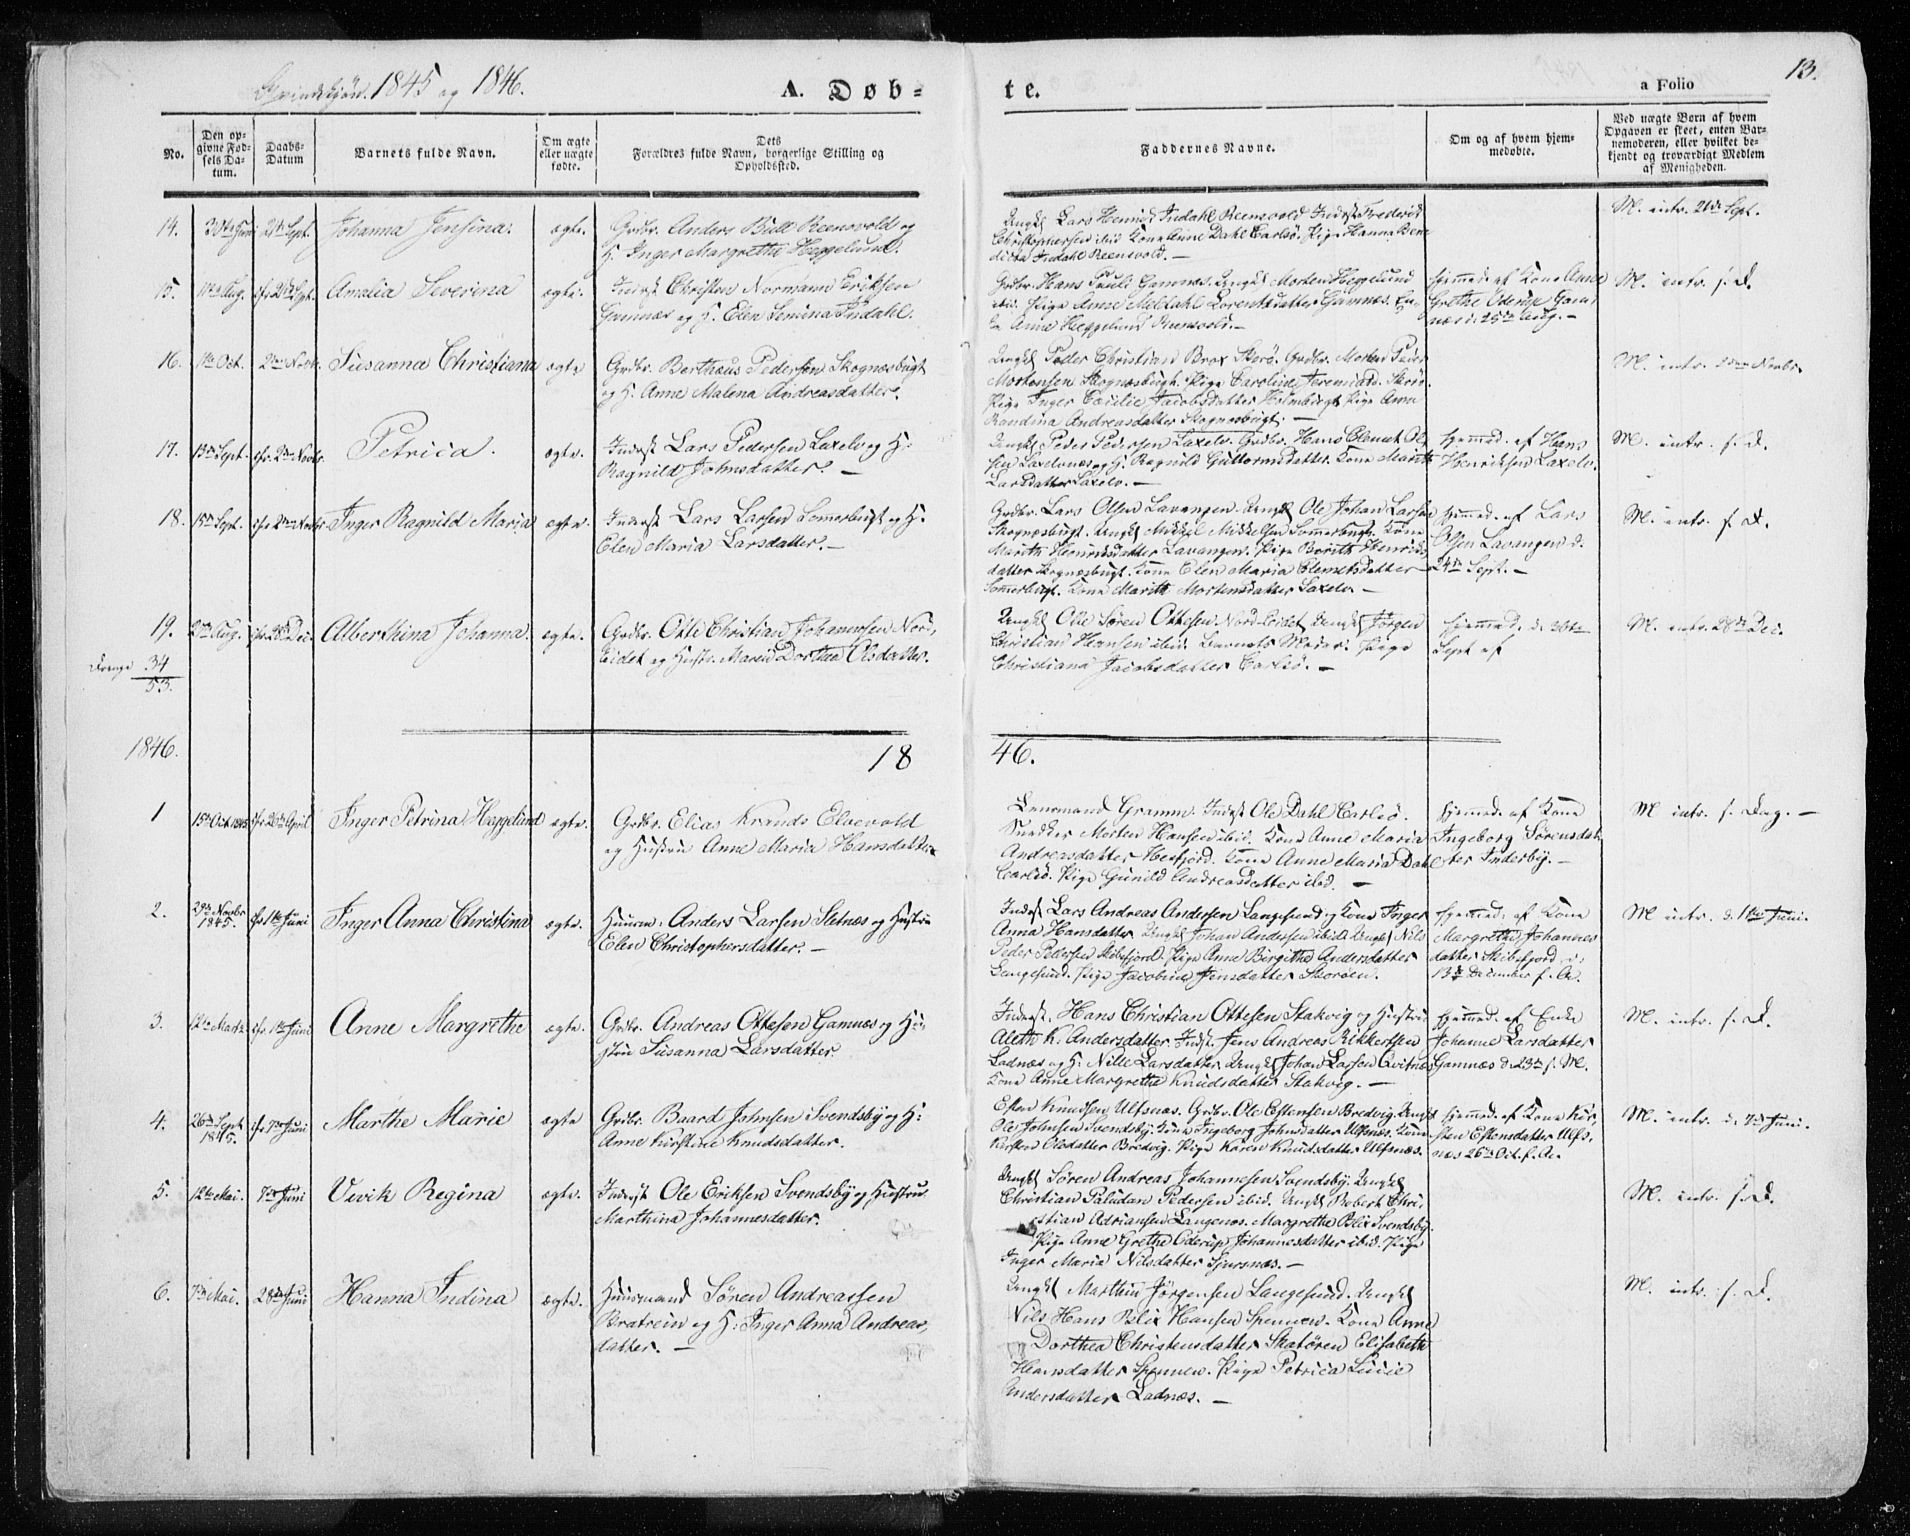 Qvindekjøn. 1845 og 1846.
A. Døb-
te.
a Folio
13.
No.
Den op-
givne Fød-
sels Da-
tum.
Daabs-
Datum
Barnets fulde Navn.
Om ægte
eller uægte
fødte.
Dets
Forældres fulde Navn, borgerlige Stilling og
Opholdssted.
Faddernes Navne.
Om og af hvem hjem-
medøbte.
Ved uægte Børn af hvem
Opgaven er skeet, enten Bar-
nemoderen, eller hvilket be-
kjendt og troværdigt Medlem
af Menigheden.
14. 30te Juni 21de Sept. Johanna Jensina. ægte.
Grdbr. Anders Bull Reensvold og
H. Inger Margrethe Heggelund.
Ungk. Lars Henrik Indahl Reensvold Inderst Frederik
Christophersen ibid Kone Anne Dahl Carlsö. Pige Hanna Bene
dicta Indahl Reensvold.—
M. intr. 21de Sept.
15. Aug. 21de Sept. Amalia Severina ægte.
Inderst Christen Normann Eriksen
Gamnæs og H. Elen Lenina Indahl.
Grdbr. Hans Pauli Gamnæs. Ungk. Morten Heggelund
ibid. Pige Anne Meldahl Lorentsdatter Gamnæs. En-
ke Anne Heggelund Reensvold.—
hjemmed. af Kone Anne
Grethe Oderup Gam-
næs d. 25de Aug.—
M. intr. s. D.
16. 1te Oct. 2den Novbr. Susanna Christiana ægte
Grdbr. Bertheus Pedersen Skognæsbugt
og H. Anne Malena Andreasdatter.
Ungk. Peder Christian Brox Skorö. Grdbr. Morten Peder
Mortensen Skognæsbugt. Pige Caroline Jeremiasd. Skorö.
Pige Inger Cecilie Jacobsdatter Holmbugt Pige Anne
Randina Andreasdatter Skognesbugt.—
M. intr. 2den Novbr.
17. 13de Sept. 2den Novbr. Petrica. ægte.
Inderst Lars Pedersen Laxelv og H:
Ragnild Johnsdatter.—
Ungk. Peder Pedersen Laxelv. Grdbr. Hans Clemet Ol-
sen Laxelvnæs og H. Ragnild Guttormsdatter. Kone Marith
Larsdatter Laxelv.—
hjemmed. af Hans
Henriksen Laxelv.
M. intr. s. D.
18. 15de Sept. 2den Novbr Inger Ragnild Maria ægte.
Inderst Lars Larsen Sommerbugt og H.
Elen Maria Larsdatter.—
Grdbr. Lars Olsen Lavangen. Ungk. Ole Johan Larsen
Skognesbugt. Ungk. Mikkel Mikkelsen Sommerbugt. Kone
Marith Henriksdatter Lavangen. Pige Berith Henriks
datter Skognesbugt. Kone Elen Maria Clemetsdatter
Sommerbugt. Kone Marith Mortensdatter Laxelv—
hjemmed. af Lars
Olsen Lavangen d.
24de Sept.—
M. intr. s. D.
19. Aug. 28de Dec. Alberthina Johanna. ægte.
Grdbr. Otte Christian Johannesen Nor-
Eidet og Hustr. Maren Dorthea Olsdatter.
Ungk. Ole Søren Ottesen. Nord-Eidet Ungk. Jørgen
Christian Hansen ibid. Barnets Moder. Pige
Christiana Jacobsdatter Carlsö.—
hjemmed. d. 30te
Sept af
M. intr. 28de Dec.
Drenge 34
53.
1846.
18
46.
1 15de Oct. 1845 26de April Inger Petrina Heggelund ægte.
Grdbr. Elias Elvevold
og Hustru Anne Maria Hansdatter
Lensmand Gramm. Inderst Ole Dahl Carlsö.
Morten Hansen ibid. Kone Anne Maria
Andreasdatter Hesfjord. Kone Anne Maria Dahl
Carlsö. Pige Gunild Andreasdatter ibid.—
hjemmed. af Kone
Ingeborg Sørensdat-
ter Inderby.—
M intr. s. Dag.—
2. 29de Novbr 1845. 1te Juni Inger Anna Christina ægte.
Huusm: Anders Larsen Sletnæs og Hustru
Elen Christophersdatter.—
Inderst Lars Andreas Andersen Langesund og Kone Inger
Anna Hansdatter Ungk. Johan Andersen ibid. Ungk. Nils
Peder Pedersen Skibsfjord. Pige Anne Birgitha Andersdatter
Langesund. Pige Jacobine Jensdatter Skorøen.
hjemmed: af Kone
Margrethe Johannes
datter Skibsfjord d.
13de December f. A.
M intr. d. 1te Juni.
3. 12te Marts 1te Juni Anne Margrethe ægte.
Grdbr. Andreas Ottesen Gamnæs og Hu-
stru Susanna Larsdatter
Inderst. Hans Christian Ottesen Stakvig og Hustru
Aleth K. Andersdatter. Inderst. Jens Andreas Rikkertsen
Ladnæs og H. Nille Larsdatter Ungk. Johan Larsen Qvitnæs
Kone Anne Margrethe Knudsdatter Stakvig.—
hjemmed. af Enke
Johanne Larsdatter
Gamnæs d. 23de s. M.
M. intr. s. D.
4. 26de Sept 1845. 7de Juni Marthe Marie ægte
Grdbr. Baard Johnsen Svendsby og H:
Anne Kirstine Knudsdatter.
Esten Knudsen Ulfsnæs. Grdbr. Ole Estensen Bredvig. Ungk
Ole Johnsen Svendsby. Kone Ingeborg Johnsdatter Ulfsnæs. Kone
Kirsten Olsdatter Bredvig. Pige Karen Knudsdatter Ulfsnæs.
hjemmed. af Kone Kir-
sten Estensdatter Ulfs-
næs 26de Oct. f. A.
M. intr. d. 7de Juni.
5. 12te Mai. 7de Juni Vivik Regina ægte.
Inderst Ole Eriksen Svendsby og Hustru
Marthina Johannesdatter.
Ungk. Søren Andreas Johannesen Svendsby. Ungk.
Christian Paludan Pedersen ibid. Ungk. Robert Chri-
stian Adriansen Langenæs. Margrethe Blix Svendsby.
Pige Anne Grethe Oderup Johannesdatter ibid. Pige
Inger Maria Nilsdatter Sjursnæs.—
M. intr. s. D.
6. 7de Mai. 28de Juni Hanna Indina ægte.
Huusmand Søren Andreassen
Bratrein og H: Inger Anna Andreas-
datter.—
Ungk. Marthin Jørgensen Langesund. Ungk.
Nils Hans Blix Hansen Spennen. Kone Anne
Dorthea Christensdatter Skatören Elisabeth
Hansdatter Spennen. Pige Petrica Lucie
Andersdatter Ladnæs.—
M. intr. s. D.